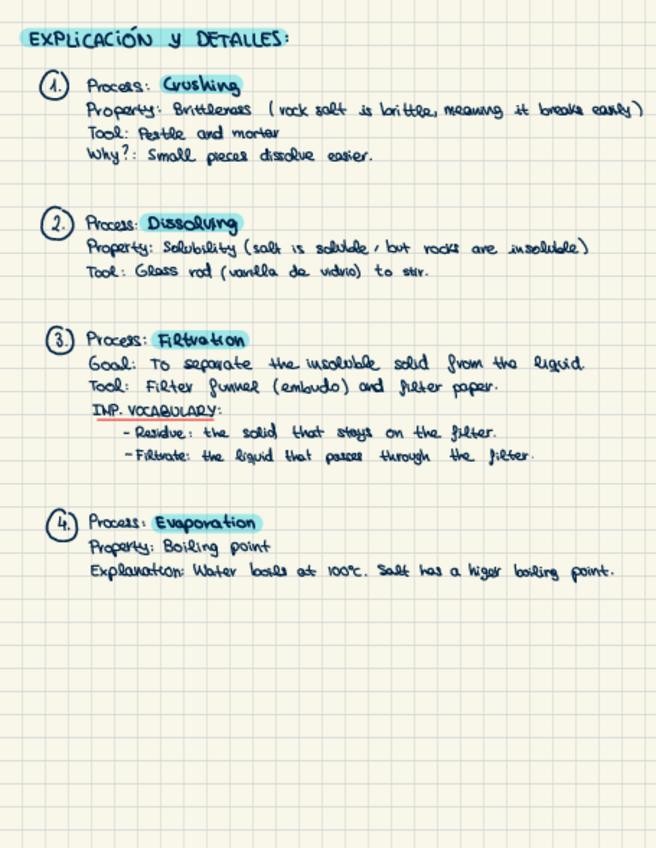 EXPLICACIÓN Y DETALLES:
1. Process: Crushing
Property: Brittleness (rock salt is brittle, meaning it breaks easily)
Tool: Pestle and mortar
Why?: Small pieces dissolve easier.
2. Process: Dissolving
Property: Solubility (salt is soluble, but rocks are insoluble)
Tool: Glass rod (varilla de vidrio) to stir.
3. Process: Filtration
Goal: To separate the insoluble solid from the liquid.
Tool: Filter funnel (embudo) and filter paper.
IMP. VOCABULARY:
- Residue: the solid that stays on the filter.
- Filtrate: the liquid that passes through the filter.
4. Process: Evaporation
Property: Boiling point
Explanation: Water boils at 100°C. Salt has a higer boiling point.